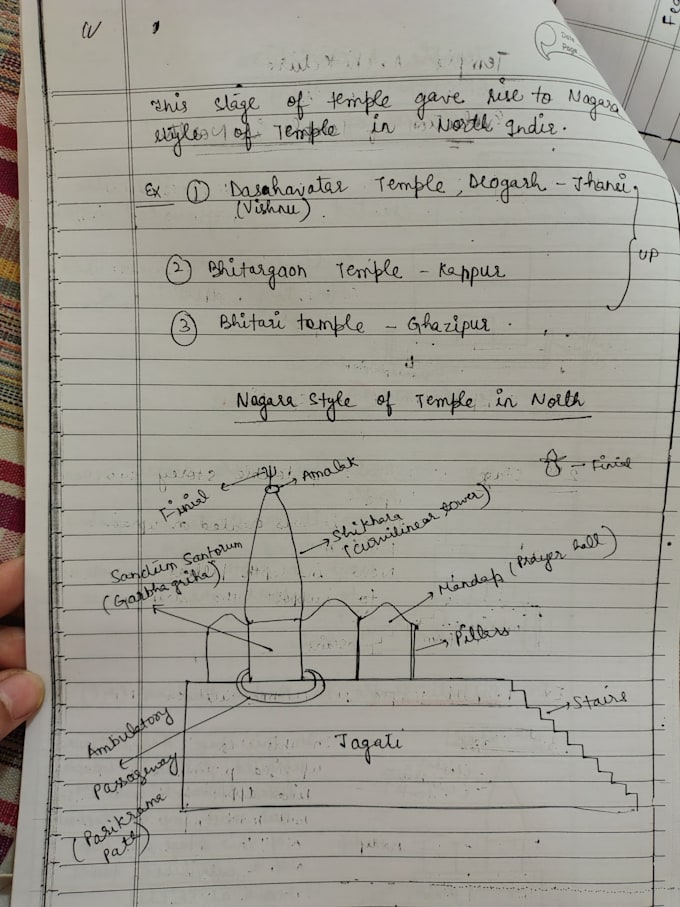 IV
Date
Page
This stage of temple gave rise to Nagara
style of Temple in North India.
Ex ① Dasahavatar Temple, Deogarh - Jhansi
(Vishnu)
UP
② Bhitargaon Temple - Kanpur
③ Bhitari temple - Ghazipur
Nagara Style of Temple in North
Finial
Amalak
Finial
Shikhara
(curvilinear tower)
Sanctum Santorum
(Garbhagriha)
Mandap (Prayer hall)
Pillars
Stairs
Jagati
Ambulatory
Passageway
(Parikrama
Path)